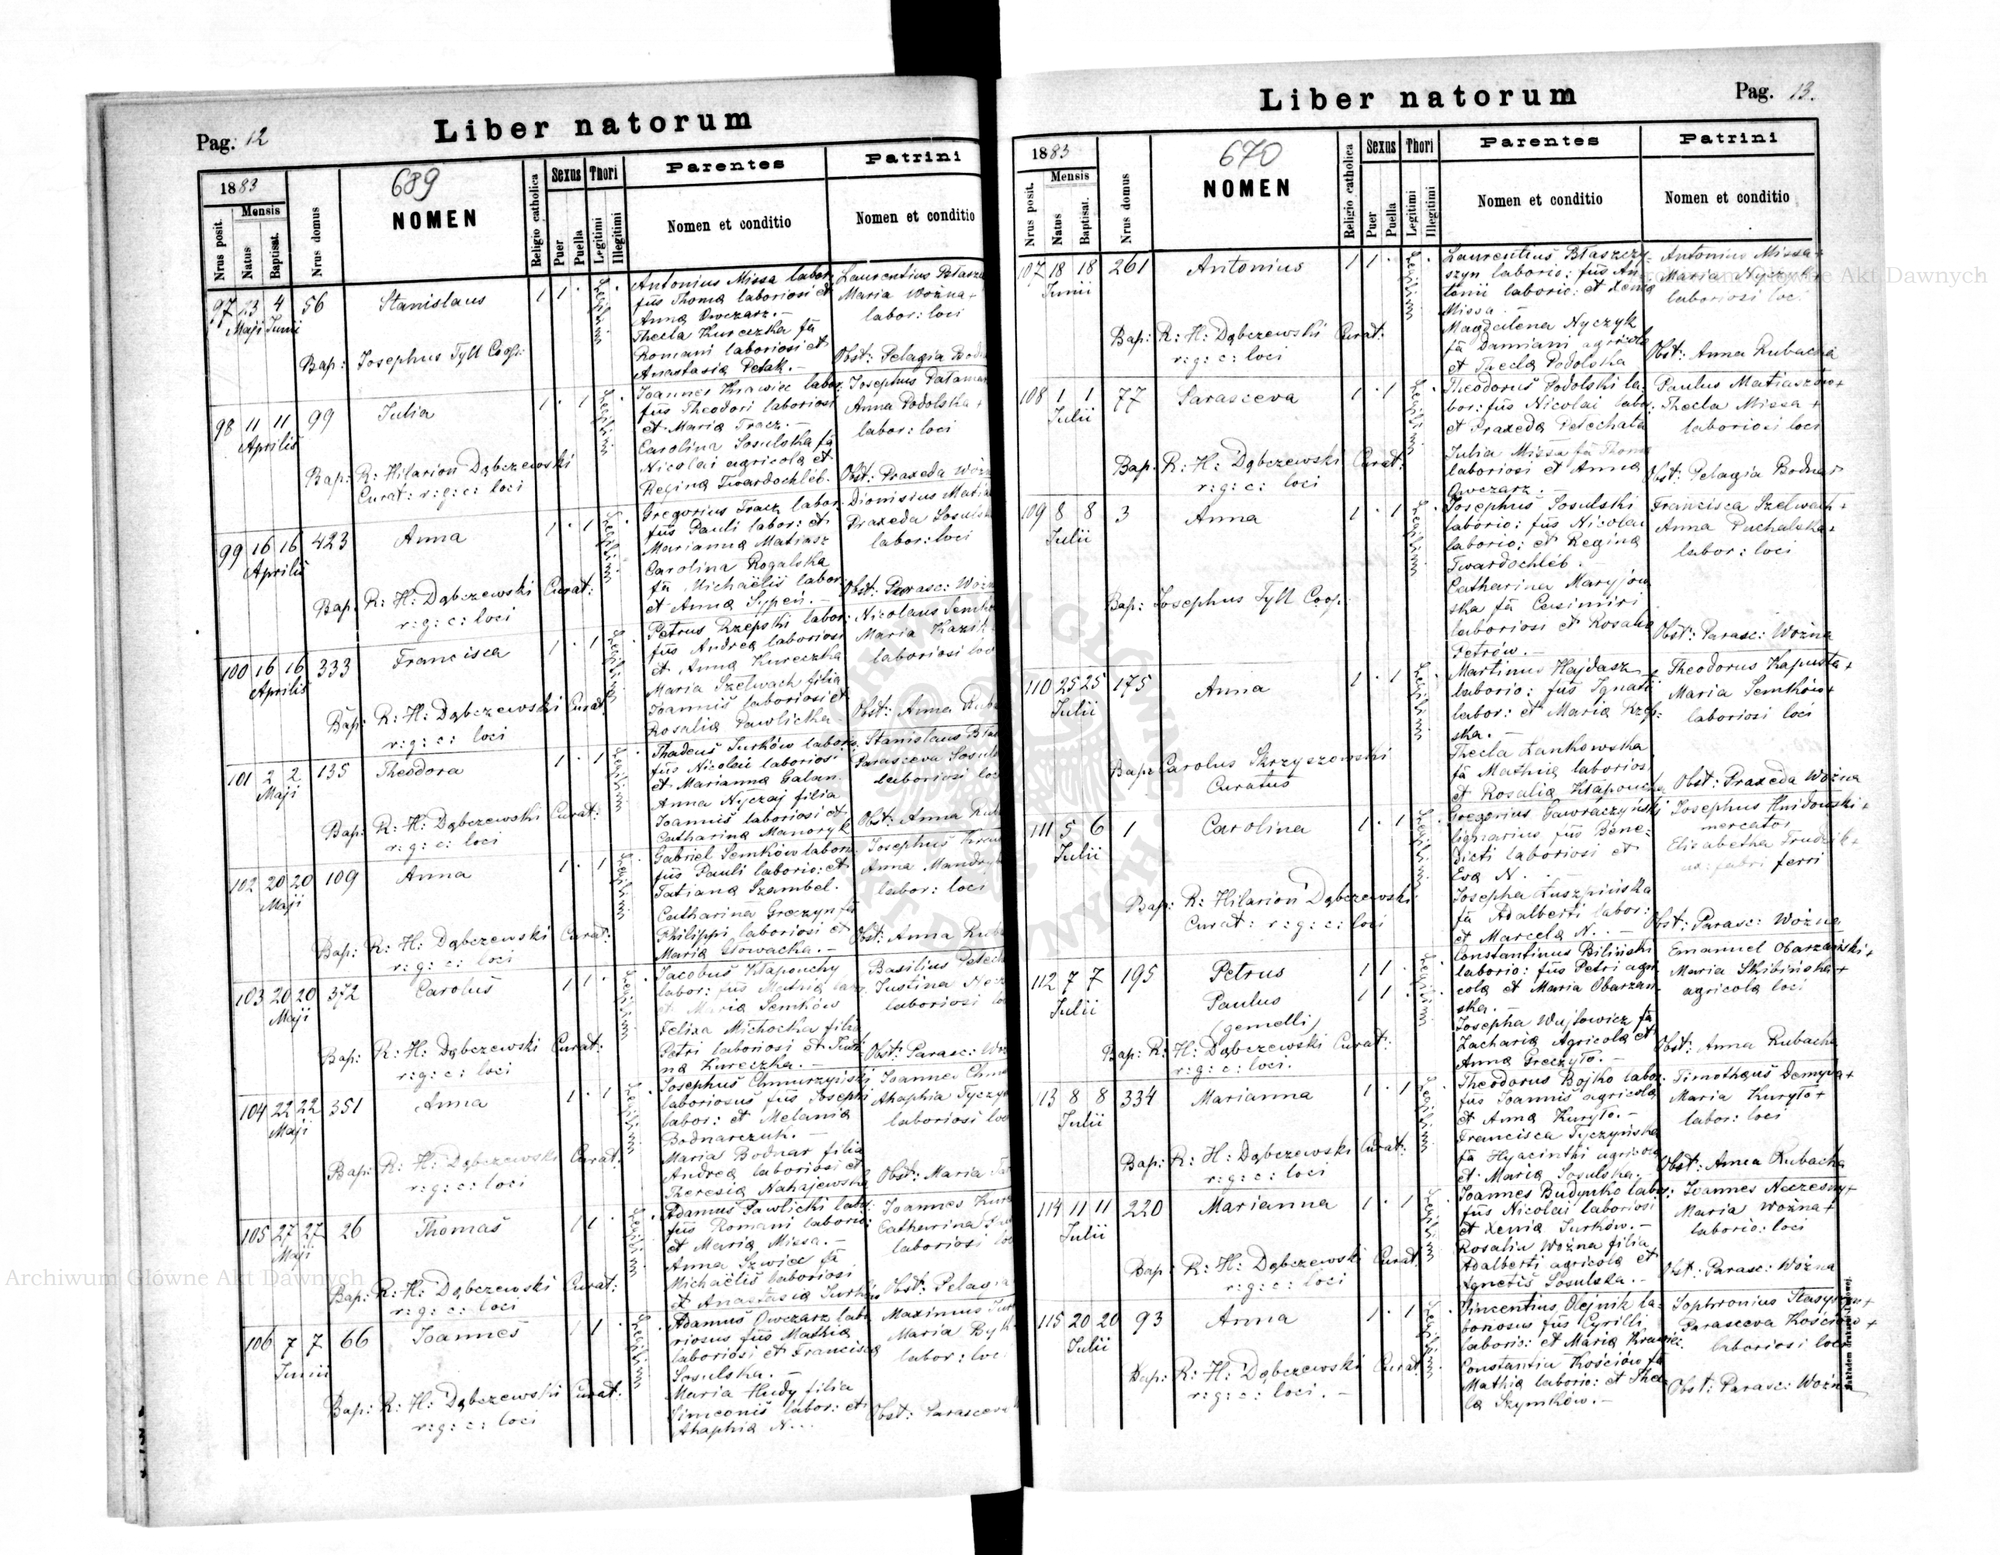 Pag. 12
Liber natorum
1883
689
NOMEN
Nrus posit.
Mensis
Natus
Baptisat.
Nrus domus
Religio catholica
Sexus
Puer
Puella
Thori
Legitimi
Illegitimi
Parentes
Nomen et conditio
Patrini
Nomen et conditio
97 23 4 56 Stanislaus 1 1 ·
Maji Junii
Bap: Josephus Tyll Coop:
Antonius Missa labor:
fiūs Thomą laboriosi et
Anną Owczarz. —
Thecla Kureczka fą
Romani laboriosi et
Anastasią Petak. —
Laurentius
Maria Woźna +
labor: loci
Obst: Pelagia
98 11 11 99 Julia 1 · 1
Aprilis
Bap: R: Hilarion Dąbczewski
Curat: r: g: c: loci
Joannes Krawiec labor:
fiūs Theodori laboriosi
et Marią Tracz. —
Carolina Sosulska fą
Nicolai agricolą et
Regina Twardochleb.
Josephus
Anna Podolska +
labor: loci
Obst: Praxeda
99 16 16 423 Anna 1 · 1
Aprilis
Bap: R: H: Dąbczewski Curat:
r: g: c: loci
Gregorius Tracz labor:
fiūs Pauli labor: et
Marianną Matiasz
Carolina Rogalska
fą Michaëlis labor:
et Anną Sypeń. —
Dionisius
Praxeda
labor: loci
Obst: Parasc:
100 16 16 333 Francisca 1 · 1
Aprilis
Bap: R: H: Dąbczewski Curat:
r: g: c: loci
Petrus Rzepski labor:
fiūs Andreą laboriosi
et Anną Kureczka
Maria Szelwach filia
Joannis laboriosi et
Rosalią Pawlicka
Nicolaus
Maria
laboriosi
Obst: Anna
101 2 2 135 Theodora 1 · 1
Maji
Bap: R: H: Dąbczewski Curat:
r: g: c: loci
Thadeus Jurków labor:
fiūs Nicolai laboriosi
et Marianną Galan.
Anna Nyczaj filia
Joannis laboriosi et
Catharina Manoryk
Stanislaus
Parasceva
laboriosi
Obst: Anna
102 20 20 109 Anna 1 · 1
Maji
Bap: R: H: Dąbczewski Curat:
r: g: c: loci
Gabriel Semków labor:
fiūs Pauli laborio: et
Tatianą Szambel.
Catharina Greczyn fą
Philippi laboriosi et
Marią Głowacka. —
Josephus
Anna
labor: loci
Obst: Anna
103 20 20 372 Carolus 1 1 ·
Maji
Bap: R: H: Dąbczewski Curat:
r: g: c: loci
Jacobus Kłapouchy
labor: fiūs
et Marią Semków
Felixa Michocka filia
Petri laboriosi et
na Kureczka. —
Basilius
Justina
laboriosi
Obst: Parasc:
104 22 22 351 Anna 1 · 1
Maji
Bap: R: H: Dąbczewski Curat:
r: g: c: loci
Josephus Chmurzyński
laboriosus fiūs Josephi
labor: et Melanią
Bodnarczuk. —
Maria Bodnar filia
Andreą laboriosi et
Teresią Nahajewska
Joannes
Ahaphia
laboriosi
Obst: Maria
105 27 27 26 Thomas 1 1 ·
Maji
Bap: R: H: Dąbczewski Curat:
r: g: c: loci
Adamus Pawlicki labor:
fiūs Romani laborio:
et Marią Missa. —
Anna Szwiec fą
Michaëlis laboriosi
et Anastasią Jurków
Joannes
Catharina
laboriosi
Obst: Pelagia
106 7 7 66 Joannes 1 1 ·
Junii
Bap: R: H: Dąbczewski Curat:
r: g: c: loci
Adamus Owczarz labo
riosus fiūs Mathią
laboriosi et Francisca
Sosulska. —
Maria Hudy filia
Simeonis labor: et
Ahaphią N...
Maximus
Maria
labor: loci
Obst: Parasceva
Liber natorum
Pag. 13.
1883
670
NOMEN
Nrus posit.
Mensis
Natus
Baptisat.
Nrus domus
Religio catholica
Sexus
Puer
Puella
Thori
Legitimi
Illegitimi
Parentes
Nomen et conditio
Patrini
Nomen et conditio
107 18 18 261 Antonius 1 1 ·
Junii
Bap: R: H: Dąbczewski Curat:
r: g: c: loci
Laurentius Błaszczy-
szyn laborio: fiūs An
tonii laborio: et Xenią
Missa. —
Magdalena Nyczyk
fą Damiani agricolą
et Theclą Podolska
Antonius Missa +
Maria Nyczyk +
laboriosi loci
Obst: Anna Rubacha
108 1 1 77 Parasceva 1 · 1
Julii
Bap: R: H: Dąbczewski Curat:
r: g: c: loci
Theodorus Podolski la-
bor: fiūs Nicolai labor:
et Praxedą Petechata
Julia Missa fą Thomą
laboriosi et Anną
Owczarz. —
Paulus Matiaszów +
Thecla Missa +
laboriosi loci
Obst: Pelagia Bodnar
109 8 8 3 Anna 1 · 1
Julii
Bap: Josephus Tyll Coop:
Josephus Sosulski
laborio: fiūs Nicolai
laborio: et Reginą
Twardochleb. —
Catharina Maryjow
ska fą Casimiri
laboriosi et Rosalią
Petrów. —
Francisca Szelwach +
Anna Puchalska +
labor: loci
Obst: Parasc: Woźna
110 25 25 175 Anna 1 · 1
Julii
Bap: Carolus Skrzyszowski
Curatus
Martinus Hajdasz
laborio: fiūs Ignati
labor: et Marią Rzep-
ska. —
Thecla Łankowska
fą Mathią laborios:
et Rosalią Kłapoucha
Theodorus Kapusta +
Maria Semków +
laboriosi loci
Obst: Praxeda Woźna
111 5 6 1 Carolina 1 · 1
Julii
Bap: R: Hilarion Dąbczewski
Curat: r: g: c: loci
Gregorius Gawraczyński
lignarius, fiūs Bene-
dicti laboriosi et
Eva N. —
Josepha Łuszpińska
fą Adalberti labor:
et Marcelą N.. —
Josephus Hnidowski +
mercator
Elisabetha Trudzik +
ux: fabri ferri
Obst: Parasc: Woźna
112 7 7 195 Petrus 1 1 ·
Julii Paulus 1 1 ·
(gemelli)
Bap: R: H: Dąbczewski Curat:
r: g: c: loci.
Constantinus Biliński
laborio: fiūs Petri agri
colą et Marią Obarzań
ska. —
Josepha Wujtowicz fą
Zacharią Agricolą et
Anną Greczyło. —
Emanuel Obarzański +
Maria Skibińska +
agricolą loci
Obst: Anna Rubacha
113 8 8 334 Marianna 1 · 1
Julii
Bap: R: H: Dąbczewski Curat:
r: g: c: loci
Theodorus Bojko labor:
fiūs Joannis agricolą
et Anną Kuryło. —
Francisca Tyczyńska
fą Hyacinthi agricolą
et Marią Sosulska.
Timotheus Demyda +
Maria Kuryło +
labor: loci
Obst: Anna Rubacha
114 11 11 220 Marianna 1 · 1
Julii
Bap: R: H: Dąbczewski Curat:
r: g: c: loci
Joannes Budynko labor:
fiūs Nicolai laboriosi
et Xenią Jurków. —
Rosalia Woźna filia
Adalberti agricolą et
Agnetis Sosulska. —
Joannes Neczesny +
Maria Woźna +
laborio: loci
Obst: Parasc: Woźna
115 20 20 93 Anna 1 · 1
Julii
Bap: R: H: Dąbczewski Curat:
r: g: c: loci. —
Vincentius Olejnik la-
boriosus fiūs Cyrilli
laborio: et Marią Krawiec.
Constantia Kościów fą
Mathią laborio: et Thec
lą Szymków. —
Sophronius
Parasceva Kościów +
laboriosi loci
Obst: Parasc: Woźna
Archiwum Główne Akt Dawnych
Archiwum Główne Akt Dawnych